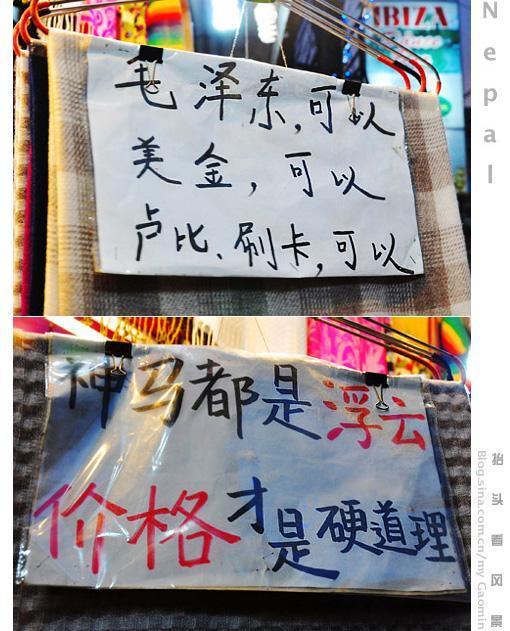 毛泽东,可以
美金,可以
卢比、刷卡,可以
IBIZA
Nepal
神马都是浮云
价格才是硬道理
抬头看风景
Blog.sina.com.cn/my Gaomin